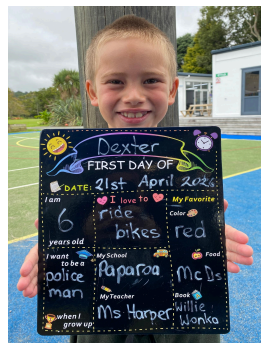 Dexter
FIRST DAY OF
DATE: 21st April 2026
I am
6
years old
I love to
ride
bikes
My Favorite
Color
red
I want
to be a
police
man
when I
grow up
My School
Paparoa
My Teacher
Ms Harper
Food
McDs
Book
Willie
Wonka